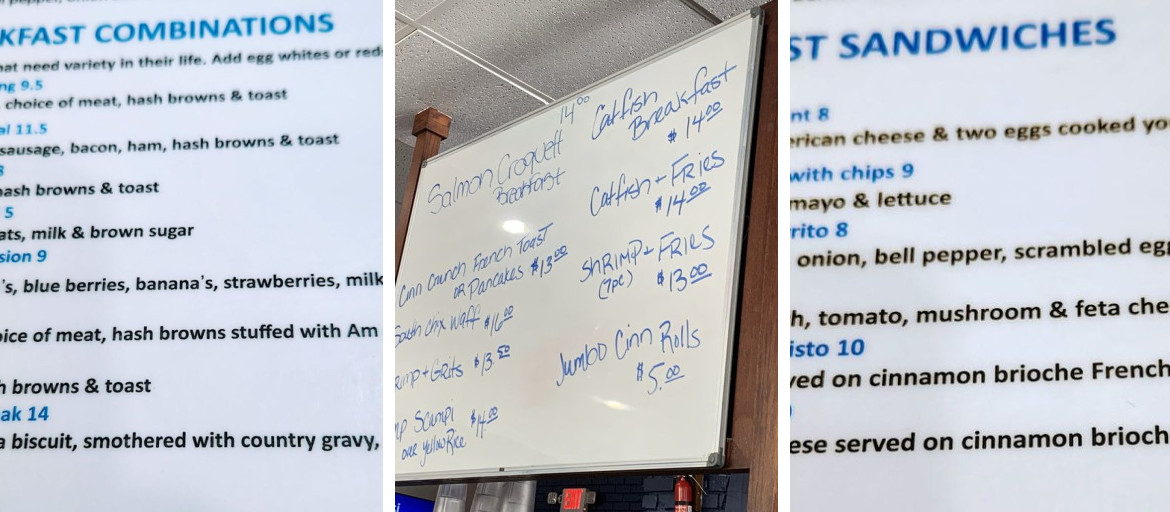 KFAST COMBINATIONS
hat need variety in their life. Add egg whites or red
ng 9.5
choice of meat, hash browns & toast
al 11.5
sausage, bacon, ham, hash browns & toast
hash browns & toast
5
ats, milk & brown sugar
sion 9
's, blue berries, banana's, strawberries, milk
oice of meat, hash browns stuffed with Am
h browns & toast
ak 14
a biscuit, smothered with country gravy,
Salmon Croquett 14⁰⁰
Breakfast
Cinn Crunch French Toast
or Pancakes $13.00
South Chix Waff $16.00
rimp + Grits $13.50
mp Scampi $14.00
over yellow Rice
Catfish
Breakfast
$14.00
Catfish + Fries
$14.00
Shrimp + Fries
(7pc) $13.00
Jumbo Cinn Rolls
$5.00
ST SANDWICHES
nt 8
erican cheese & two eggs cooked yo
with chips 9
mayo & lettuce
rito 8
onion, bell pepper, scrambled egg
h, tomato, mushroom & feta che
isto 10
ved on cinnamon brioche French
ese served on cinnamon brioch